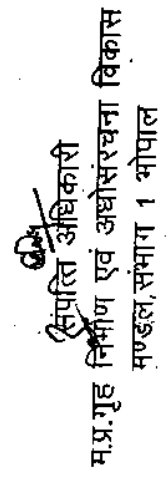 संपत्ति अधिकारी
म.प्र.गृह निर्माण एवं अधोसंरचना विकास
मण्डल,संभाग 1 भोपाल